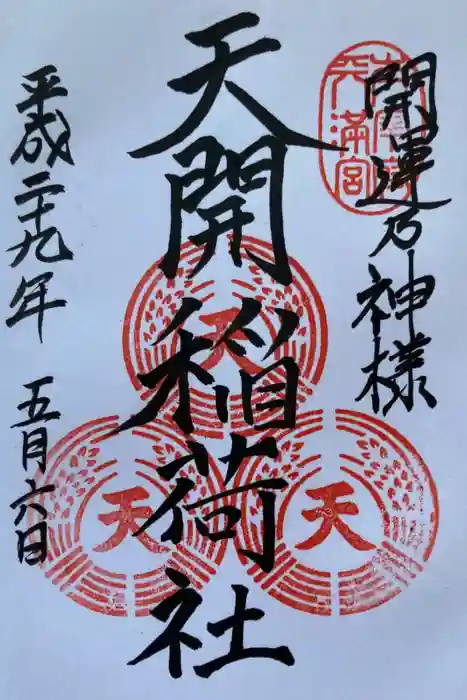 開運乃神様
天開稲荷社
平成二十九年 五月六日
天
天
天
太宰府
天満宮